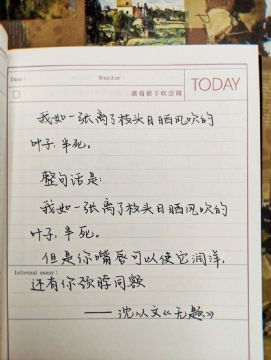 Date:
Weather:
唐荀彼子欧翌阔
TODAY
我如一张离了枝头日晒风吹的
叶子，半死。
整句话是：
我如一张离了枝头日晒风吹的
叶子，半死。
但是你嘴唇可以使它润泽，
Informal essay:
还有你颈脖同额
——沈从文《无题》